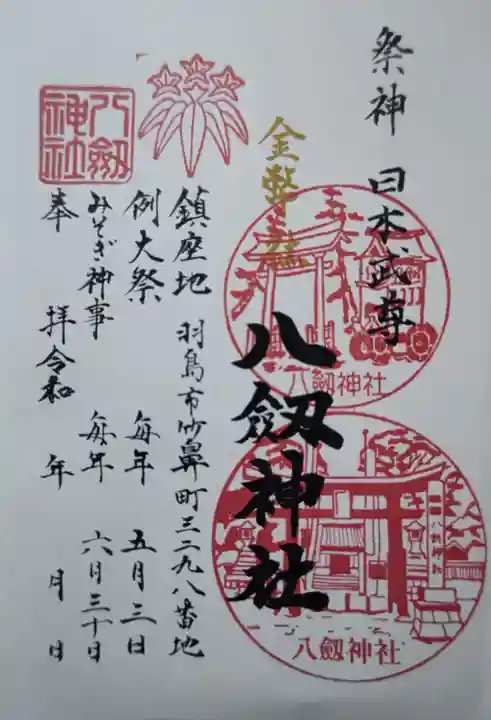 祭神 日本武尊
金幣社
八劔神社
八劔神社
八劔神社
八劔神社
鎮座地 羽島市竹鼻町三二九八番地
例大祭 毎年 五月三日
みそぎ神事 毎年 六月三十日
奉拝 令和 年 月 日
八劔神社